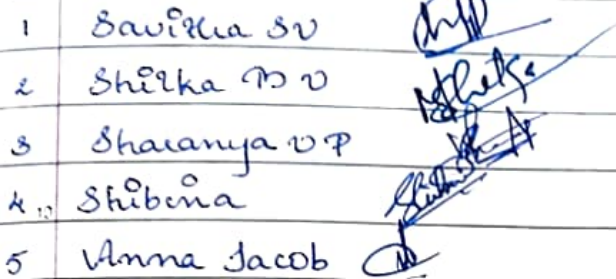 1 Savitha SV
2 Shilka M V
3 Sharanya V P
4 Shibina
5 Anna Jacob